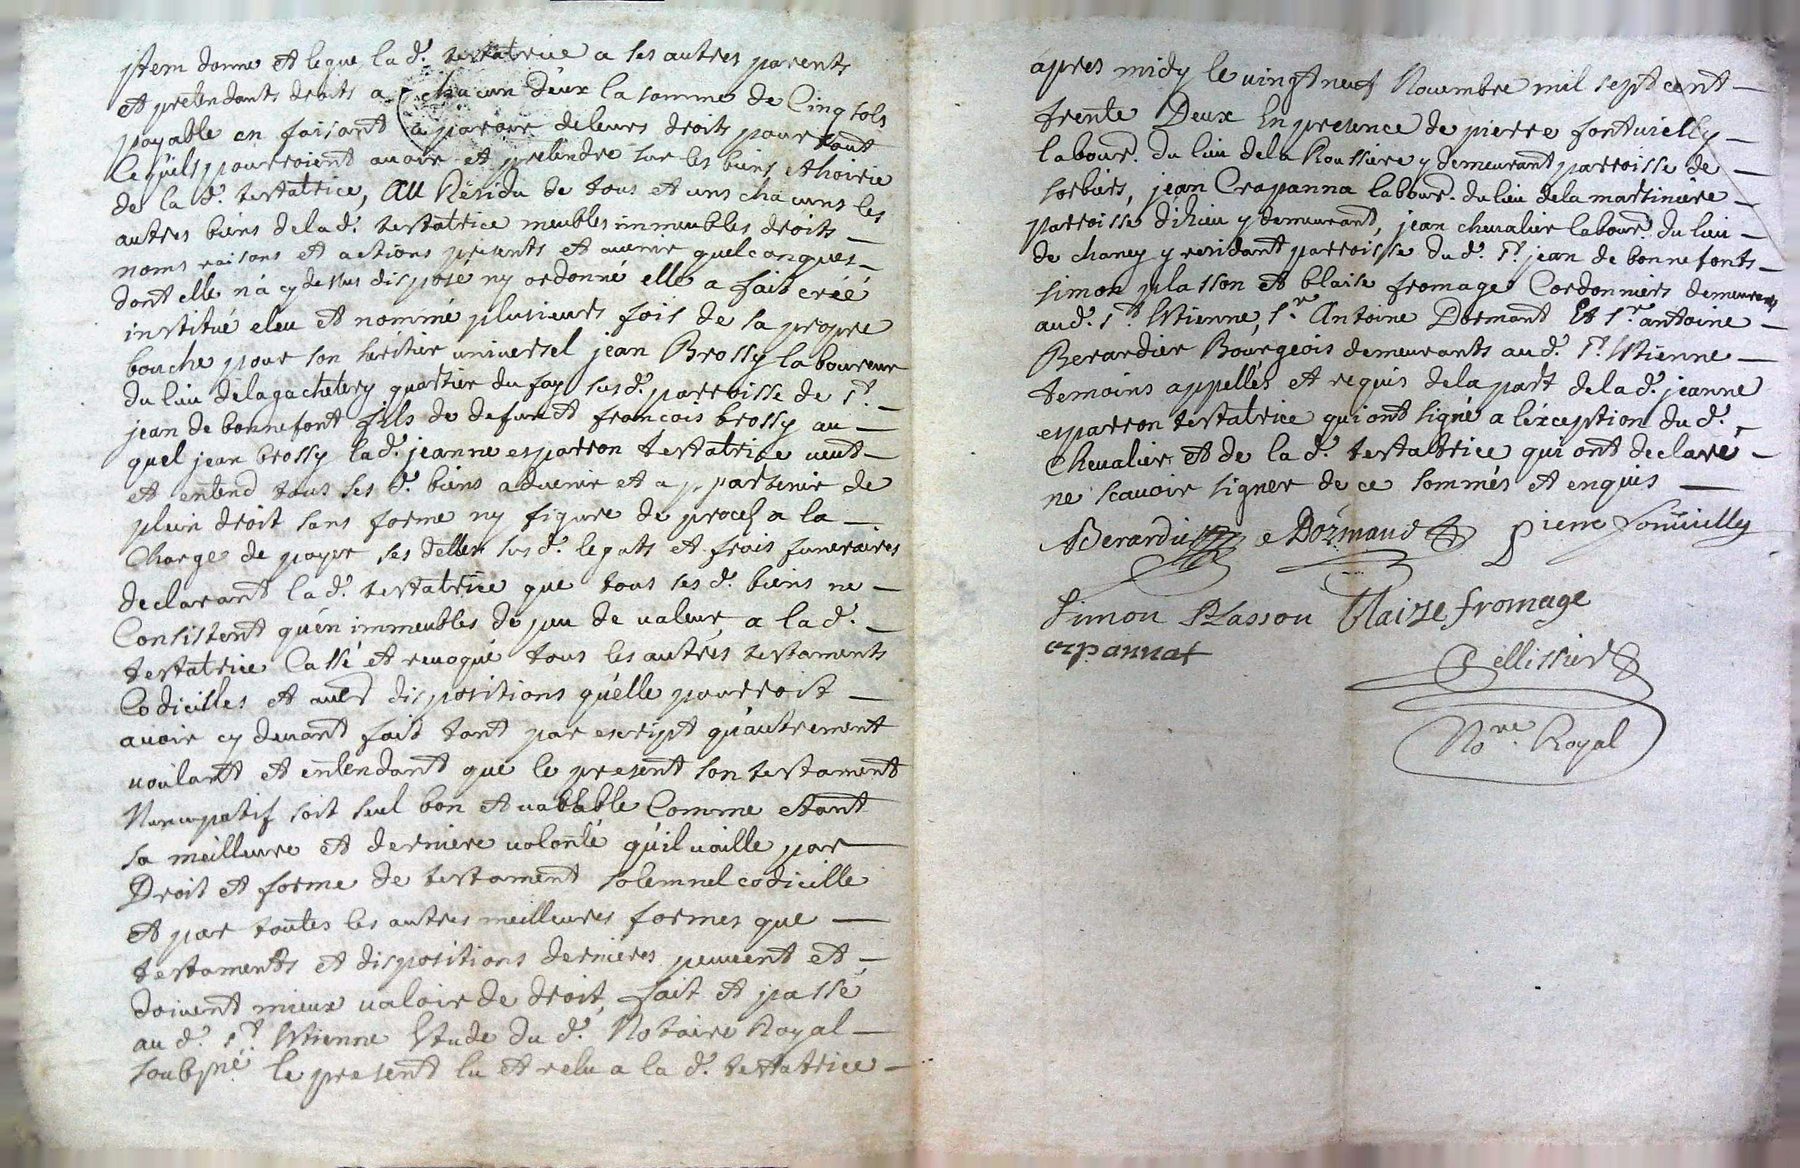 Item donne et legue la d.e testatrice a ses autres parents
et pretendants droits a chacun d'eux la somme de Cinq sols
payable en faisant a paroir de leurs droits pour tout
ce qu'ils pourroient avoir et pretendre sur les biens et hoirie
de la d.e testatrice, Au Residu de tous et uns chacuns les
autres biens de la d.e testatrice meubles immeubles droits
noms raisons et actions presents et avenir quelconques
dont elle n'a cy dessus disposé ny ordonné elle a fait creé
institué eleu et nommé plusieurs fois de sa propre
bouche pour son heritier universel jean Brossy laboureur
du lieu de lagachetery quartier du fay susd.e parroisse de S.t
jean de bonnefont fils de defunct francois brossy au
quel jean brossy la d.e jeanne esparron testatrice veut
et entend tous ses d.s biens advenir et appartenir de
plein droit sans forme ny figure de procés a la
Charge de payer ses dettes susd.s legats et frais funeraires
declarant la d.e testatrice que tous ses d.s biens ne
Consistent qu'en immeubles de peu de valeur, a la d.e
testatrice Cassé et revoqué tous les autres testaments
Codicilles et aut.s dispositions qu'elle pourroit
avoir cy devant fait tant par escript qu'autrement
voulant et entendant que le present son testament
Nuncupatif soit seul bon et vablable Comme etant
sa meilleure et derniere volonté qu'il vaille par
Droit et forme de testament solemnel codicille
et par toutes les autres meilleures formes que
testaments et dispositions dernieres peuvent et
doivent mieux valoir de droit, fait et passé
au d. S.t Etienne Etude du d. Notaire Royal
soubsné le present lu et relu a la d.e testatrice
apres midy le vingt neuf Novembre mil sept cent
trente Deux En presence de pierre fontvielly
labour. du lieu de la Roussiere y demeurant parroisse de
sorbiers, jean Crapanna labour. du lieu de la martiniere
parroisse d'ihieu y demeurant, jean chevalier labour. du lieu
de chaney y residant parroisse du d. S.t jean de bonnefonts
simon plasson et blaise fromage Cordonniers demeurants
aud. S.t Etienne, S.r Antoine Dormant Et S.r antoine
Berardier Bourgeois demeurants aud. S.t Etienne
temoins appellés et requis de la part de la d.e jeanne
esparron testatrice qui ont signé a l'exception du d.
Chevalier et de la d.e testatrice qui ont declaré
ne scavoir signer de ce sommés et enquis
Berardier Dormand Pierre fonvielly
Simon Plasson Blaize fromage
crpannat
Pellissier
No.re Royal